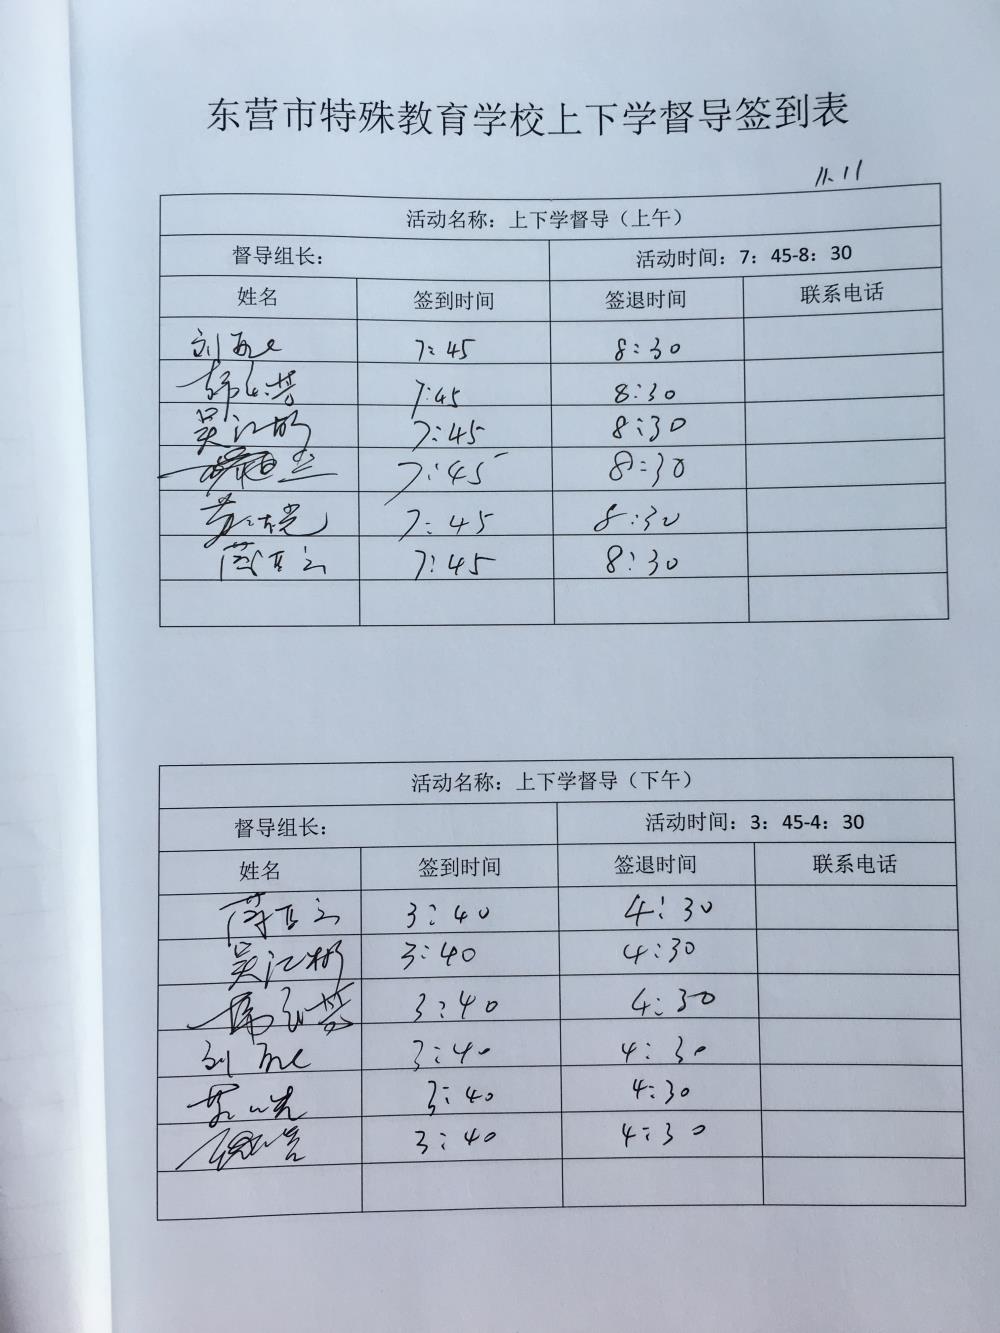 东营市特殊教育学校上下学督导签到表
11.11
活动名称：上下学督导（上午）
督导组长： 活动时间：7：45-8：30
姓名 签到时间 签退时间 联系电话
刘 7:45 8:30
7:45 8:30
吴江彬 7:45 8:30
7:45 8:30
7:45 8:30
7:45 8:30
活动名称：上下学督导（下午）
督导组长： 活动时间：3：45-4：30
姓名 签到时间 签退时间 联系电话
3:40 4:30
吴江彬 3:40 4:30
3:40 4:30
刘 3:40 4:30
3:40 4:30
3:40 4:30